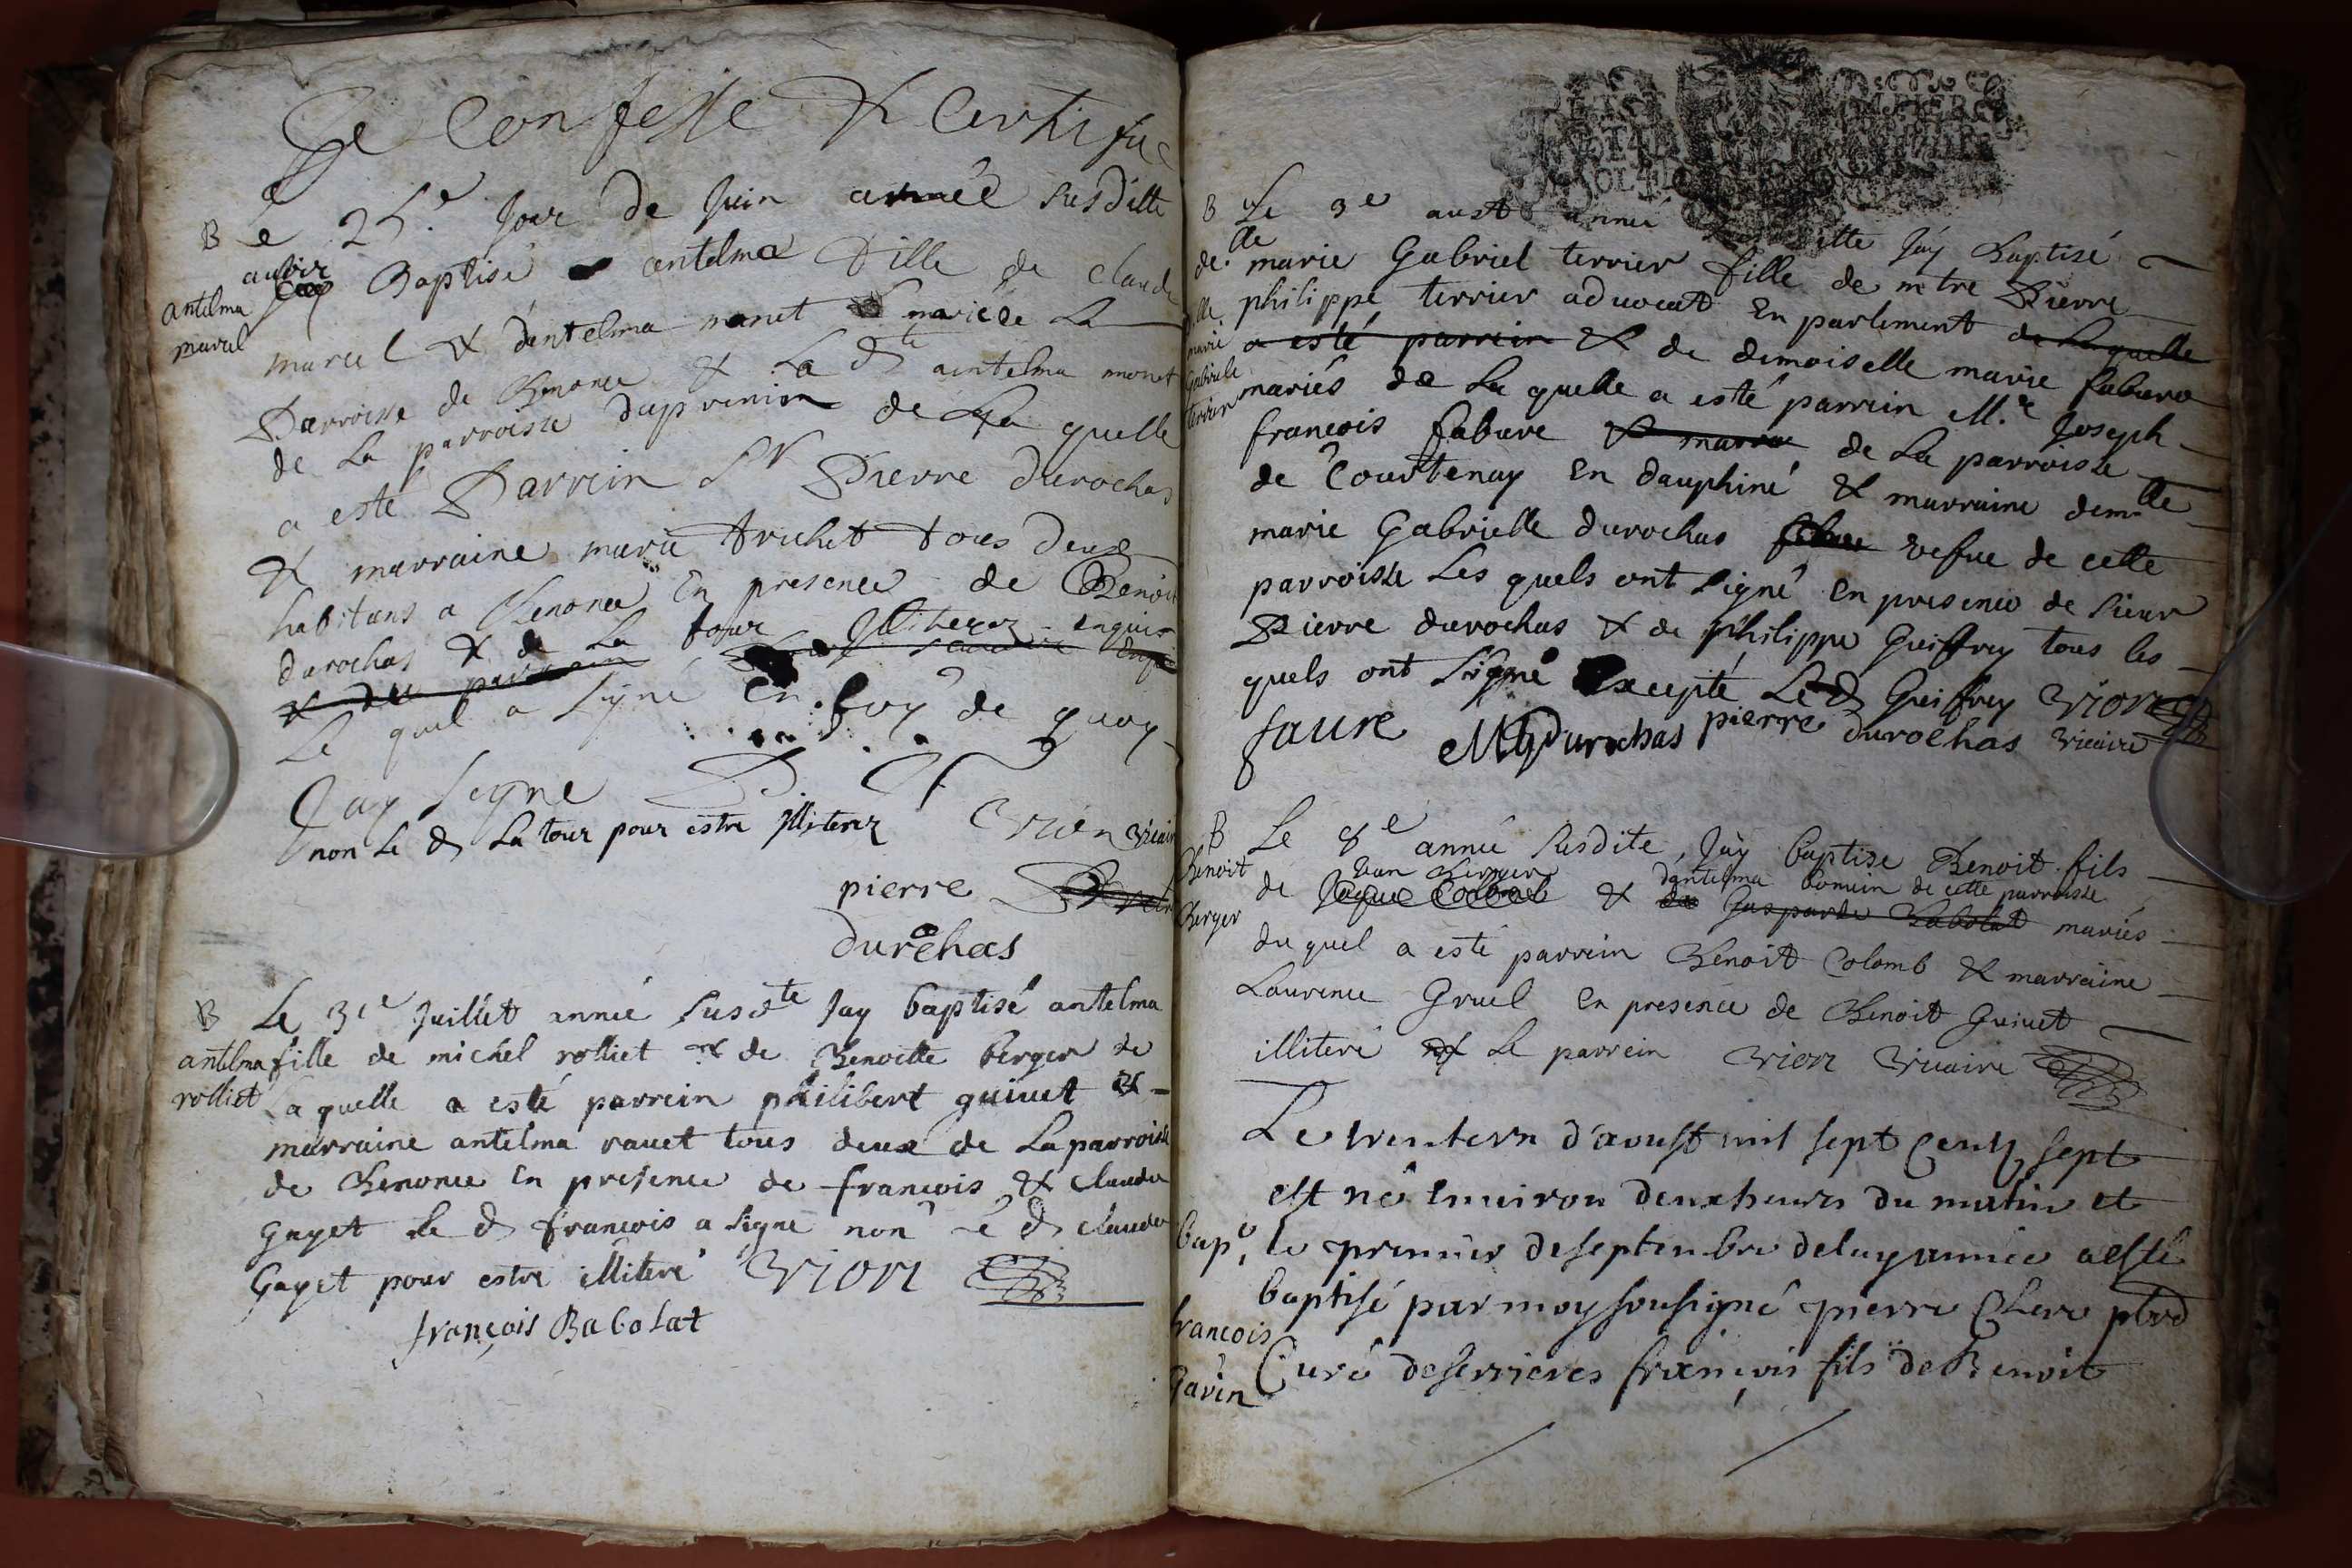 Je Confesse & Certifie
B Le 25.e Jour de Juin année susditte
auoir Baptisé antelma fille de claude
antelma
marcel
marcel & dantelma monet mariés La
Parroisse de Benonce & La dte antelma monet
de La parroisse de La quelle
a esté Parrein Sr Pierre durochas
& marraine marie trichet tous deux
habitans a Benonce En presence de Benoit
durochas & de La tour Illiterez
& du parrein
Le quel a signé En foy de quoy
Jay signe
non Le d La tour pour estre Illiterez Vrion vicaire
pierre
durochas
B Le 3e Juillet année susdte Jay baptisé antelma
antelma
rolliet
fille de michel rolliet & de Benoitte berger de
Laquelle a esté parrein philibert guinet &
marraine antelma rauet tous deux de La parroisse
de Benonce En presence de francois & claude
gayet Le d francois a signe non Le d claude
Gayet pour estre illiteré Vrion
françois Babolat
B Le 3e aust année ditte Jay Baptisé
delle
marie
Gabriele
terrier
marie Gabriel terrier fille de mtre Pierre
philippe terrier aduocat En parlement de Laquelle
a esté parrein & de dimoiselle marie fabure
mariés de La quelle a esté parrein Mr Joseph
francois fabure & marra de La parroisse
de Courtenay En dauphiné & marraine demlle
marie Gabrielle durochas vefue de cette
parroisse Les quels ont signé En presence de sieur
Pierre durochas & de Philippe Guiffrey tous les
quels ont signé Excepté Le d Guiffrey Vrion
faure MGDurochas pierre durochas vicaire
B Le 8e année susdite, Jay baptise Benoit fils
Benoit
Berger
Jean Berger dantelma bomein de cette parroisse
de Jaque Colomb & de Gasparde Babolat mariés
du quel a esté parrein Benoit Colomb & marraine
Laurence Gruel En presence de Benoit Guinet
illiteré & Le parrein Vrion Vicaire
Le trentern d'aoust mil sept Cents sept
est né Enuiron deux heures du matin et
bapé, le premier de septembre delay année a esté
baptisé par moy sousigné pierre Clerc ptre
francois
Gavin
Curé de serrieres françois fils de Benoit